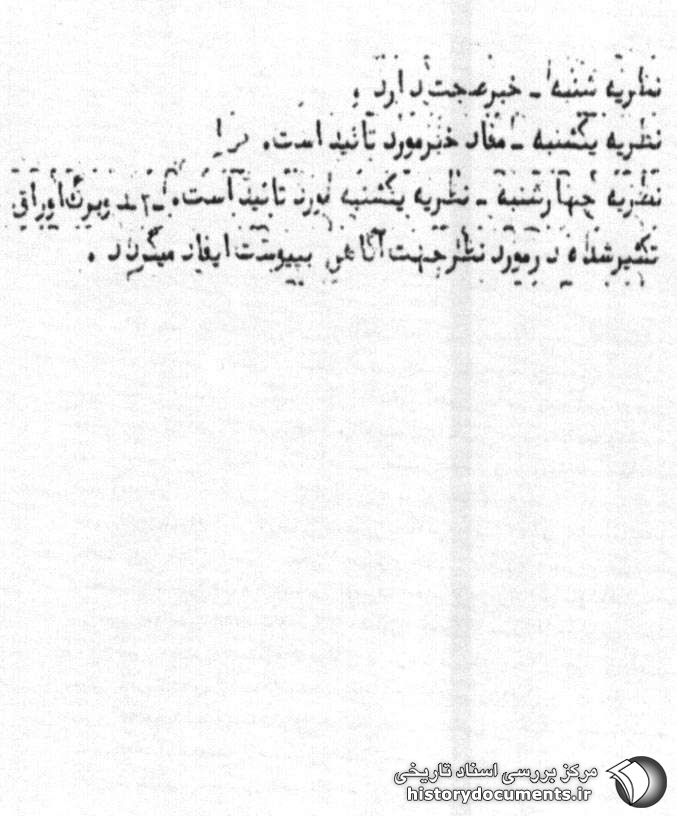 نظریه شنبه ـ خبر صحت دارد.
نظریه یکشنبه ـ مفاد خبر مورد تائید است.
نظریه چهارشنبه ـ نظریه یکشنبه مورد تائید است. ـ ۲ـ دوبرگ اوراق
تکثیر شده در مورد نظر جهت آگاهی بپیوست ایفاد میگردد.
مرکز بررسی اسناد تاریخی
historydocuments.ir